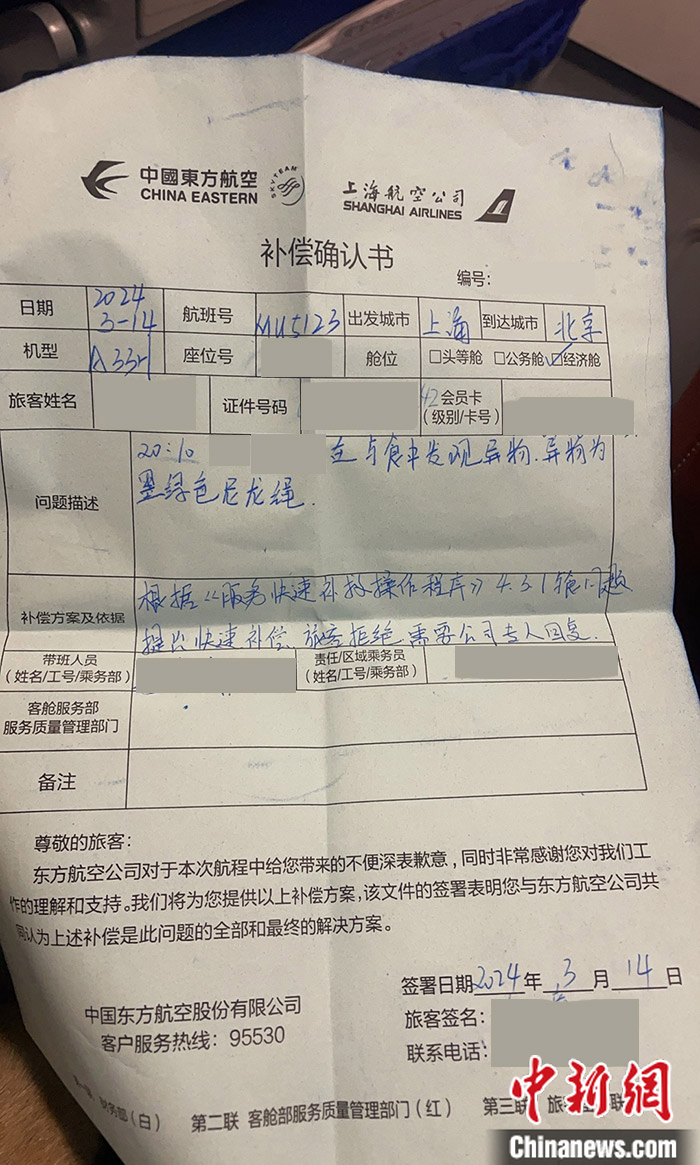 中國東方航空
CHINA EASTERN
SKYTEAM
上海航空公司
SHANGHAI AIRLINES
补偿确认书
编号:
日期 2024 3-14 航班号 MU5123 出发城市 上海 到达城市 北京
机型 A33H 座位号 舱位 □头等舱 □公务舱 ☑经济舱
旅客姓名 证件号码 42 会员卡(级别/卡号)
问题描述
20:10 在与食中发现异物.异物为
墨绿色尼龙绳.
补偿方案及依据
根据《服务快速补救操作程序》4.3.1 问题
提出快速补偿、旅客拒绝.需要公司专人回复.
带班人员
(姓名/工号/乘务部)
责任/区域乘务员
(姓名/工号/乘务部)
客舱服务部
服务质量管理部门
备注
尊敬的旅客:
东方航空公司对于本次航程中给您带来的不便深表歉意,同时非常感谢您对我们工
作的理解和支持。我们将为您提供以上补偿方案,该文件的签署表明您与东方航空公司共
同认为上述补偿是此问题的全部和最终的解决方案。
签署日期2024年 3 月 14 日
中国东方航空股份有限公司
旅客签名:
客户服务热线:95530
联系电话:
财务部(白) 第二联 客舱部服务质量管理部门(红) 第三联 旅 联
中新网
Chinanews.com